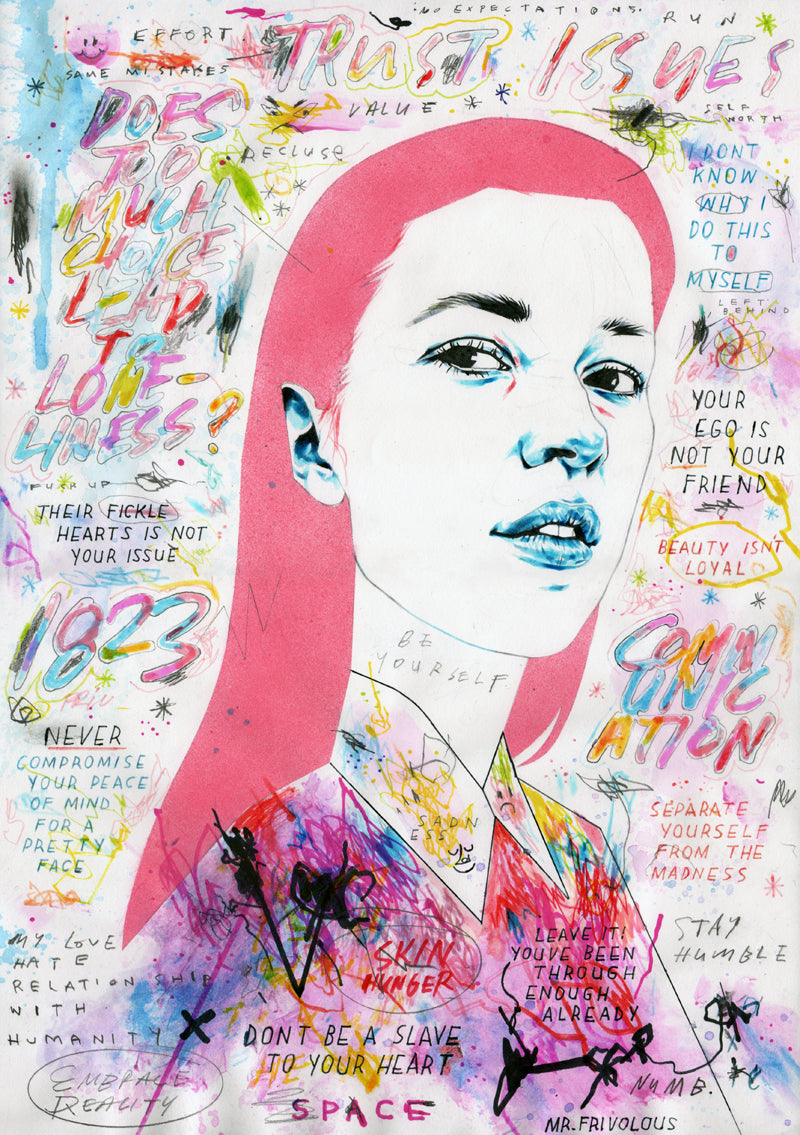 NO EXPECTATIONS.
RUN
EFFORT
TRUST ISSUES
SAME MISTAKES
VALUE
SELF
WORTH
DOES
TOO
MUCH
CHOICE
LEAD
TO
LONE-
LINESS?
RECLUSE
I DONT
KNOW
WHY I
DO THIS
TO
MYSELF
LEFT
BEHIND
YOUR
EGO IS
NOT YOUR
FRIEND
FUCK UP
THEIR FICKLE
HEARTS IS NOT
YOUR ISSUE
BEAUTY ISN'T
LOYAL
1823
BE
YOURSELF
COMM
UNIC
ATION
NEVER
COMPROMISE
YOUR PEACE
OF MIND
FOR A
PRETTY
FACE
SADN
ESS
SEPARATE
YOURSELF
FROM THE
MADNESS
MY LOVE
HATE
RELATIONSHIP
WITH
HUMANITY
SKIN
HUNGER
LEAVE IT!
YOUVE BEEN
THROUGH
ENOUGH
ALREADY
STAY
HUMBLE
DONT BE A SLAVE
TO YOUR HEART
EMBRACE
REALITY
SPACE
NUMB.
MR. FRIVOLOUS